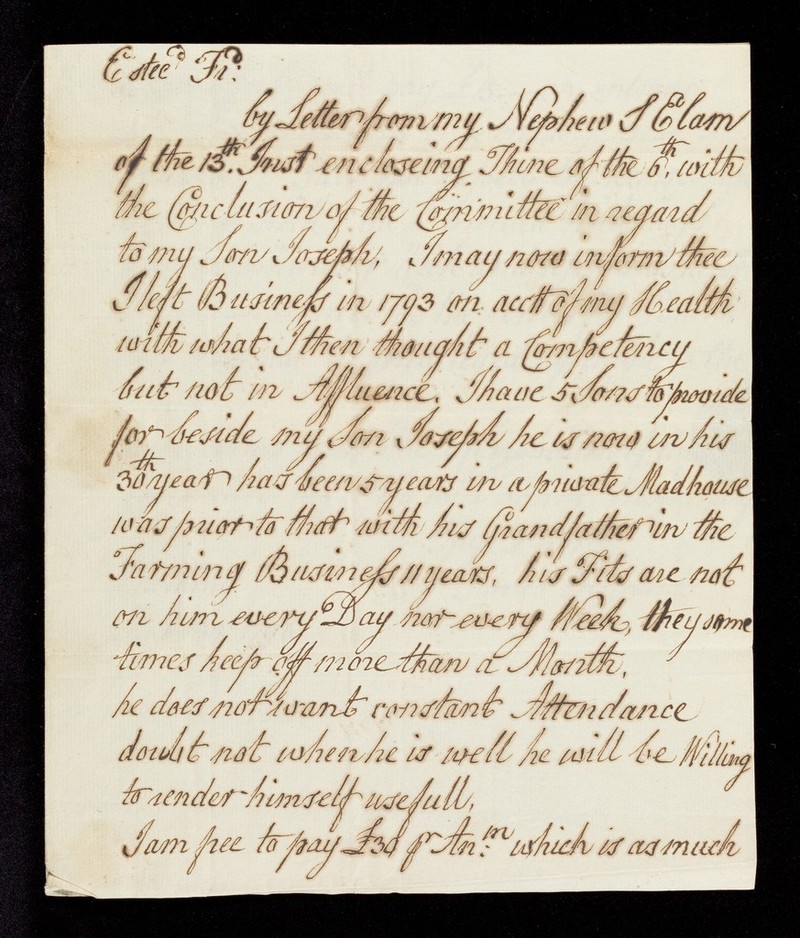 Estee^d Fr^d:
by Letter from my Nephew S Elam
of the 13^th. Inst encloseing Thine of the 6^th. with
the Conclusion of the Committee in regard
to my Son Joseph, I may now inform thee
I left Business in 1793 on acctt of my Health
with what I then thought a Competency
but not in Affluence. I have 5 Sons to provide
for beside my Son Joseph he is now in his
30^th year has been 5 years in a private Madhouse
was prior to that with his Grandfather in the
Farming Business 11 years, his Fits are not
on him every Day nor every Week, they some
times keep off more than a Month,
he does not want constant Attendance
doubt not when he is well he will be Willing
to render himself usefull,
I am free to pay £30 pr An:^m which is as much